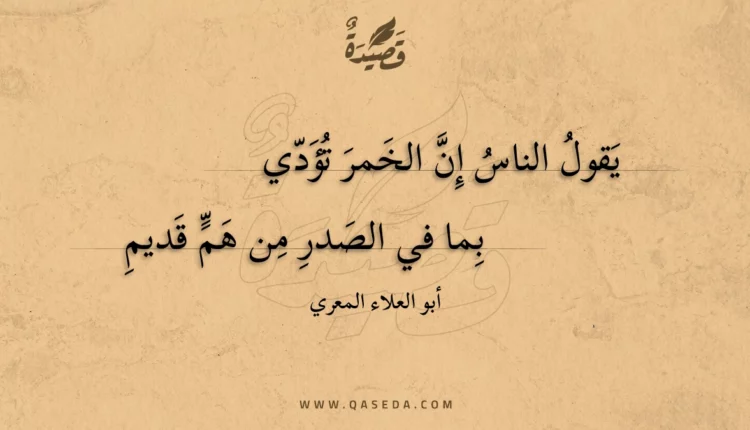 قَصِيْدَةٌ
يَقولُ الناسُ إِنَّ الخَمرَ تُؤَدّي
بِما في الصَدرِ مِن هَمٍّ قَديمِ
أبو العلاء المعري
WWW.QASEDA.COM